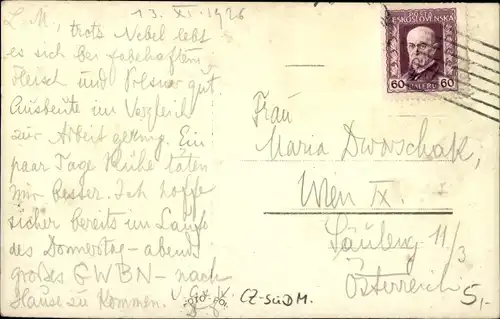 13. XI. 1926
L. M., trotz Nebel lebt
es sich bei fabelhaftem
Fleisch und Pilsner gut.
Ausbeute im Vergleich
zur Arbeit gering. Ein
paar Tage Ruhe täten
mir besser. Ich hoffe
sicher bereits im Laufe
des Donnerstag-abend
großes GWBN - nach
Hause zu kommen.
POŠTA
ČESKOSLOVENSKÁ
60 HALÉŘŮ 60
Frau
Maria Dworschak,
Wien IX.
Säuleng 11/3
Österreich
CZ-SÜDM.
5,-